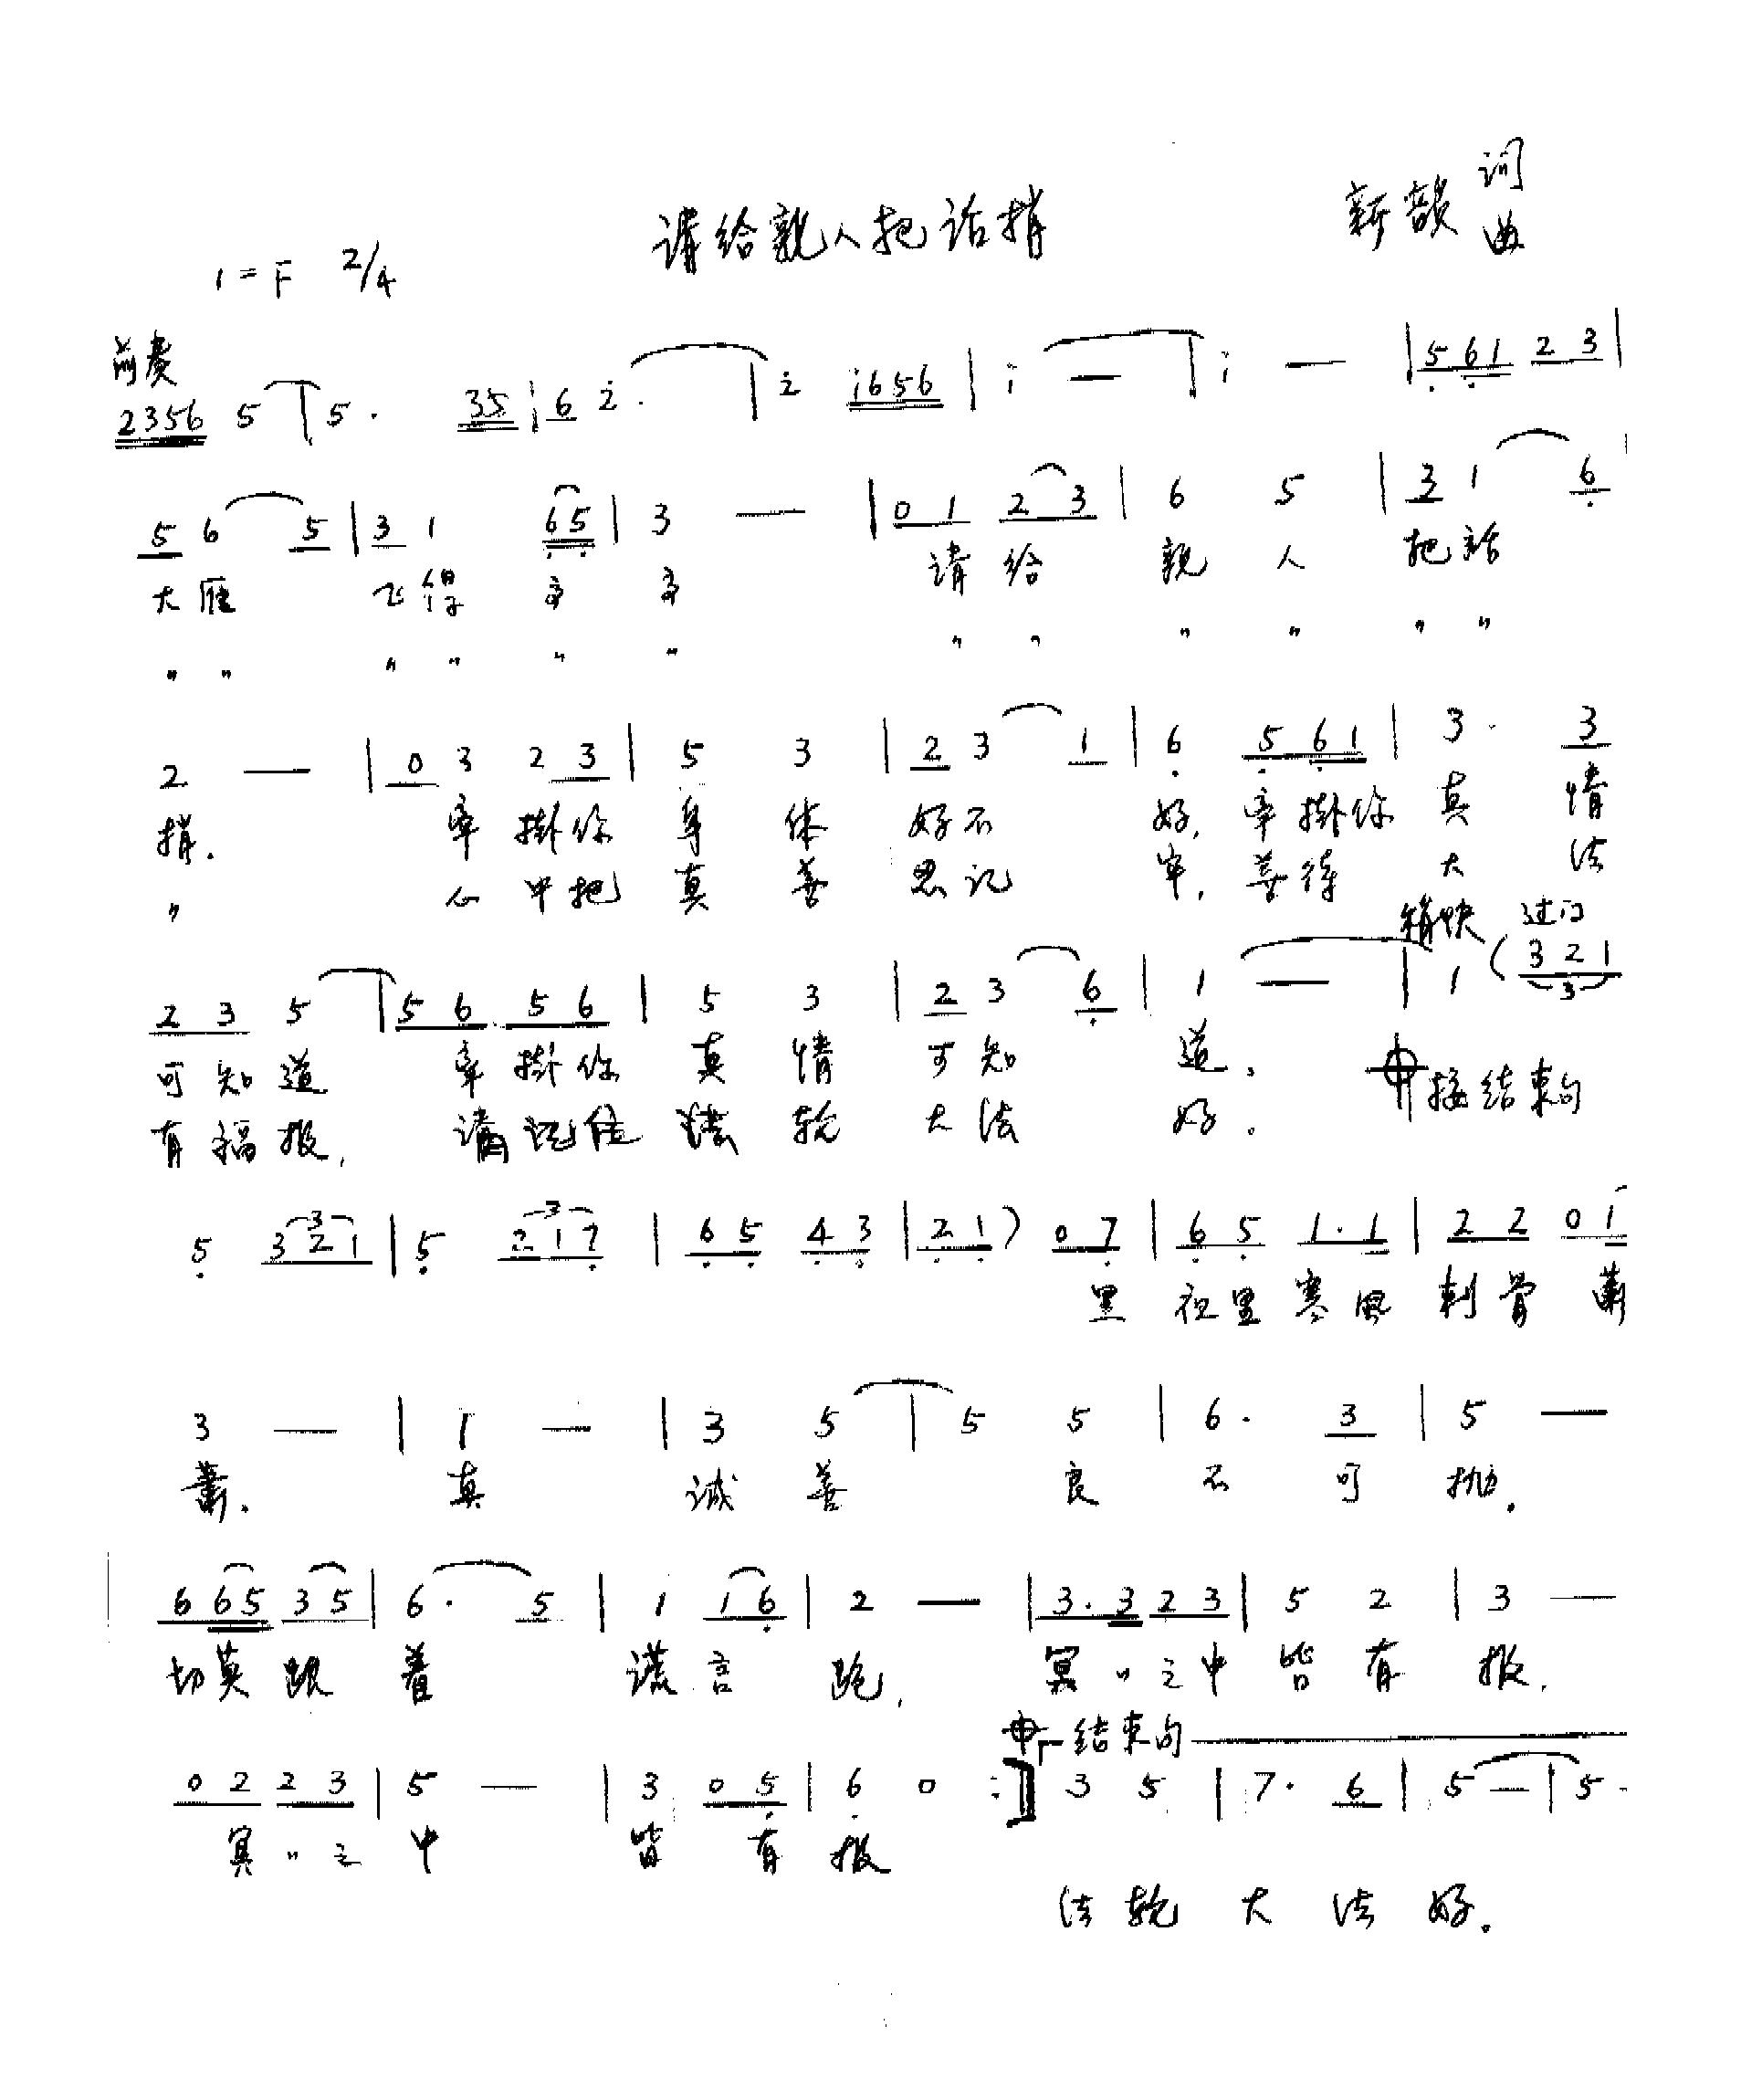 请给親人把话捎
新韻 词曲
1=F 2/4
前奏
2356 5 | 5. 35 | i 6 2̇. | 2̇ i656 | i — | i — | 5̣6̣1 2 3 |
5 6 5 | 3 1 6̣5̣ | 3 — | 0 1 2 3 | 6 5 | 3 1 6̣ |
大雁 飞得高高 请给 親人 把話
〃 〃 〃 〃 〃 〃 〃 〃 〃 〃 〃 〃
2 — | 0 3 2 3 | 5 3 | 2 3 1 | 6̣ 5̣6̣1 | 3. 3
捎. 牽掛你身体好不好, 牽掛你真情
〃 心中把真善思记牢, 善待大法
稍快 过门
2 3 5 | 5 6 5 6 | 5 3 | 2 3 6̣ | 1 — | 1 (3 2 1
可知道 牽掛你真情可知道. 接结束句
有福报, 请记住法轮大法好.
5̣ 3 2 1 | 5̣ 2 1 7̣ | 6̣ 5̣ 4̣ 3̣ | 2̣ 1̣) 0 7̣ | 6̣ 5̣ 1.1 | 2 2 0 1
黑夜里寒風刺骨蕭
3 — | 1 — | 3 5 | 5 5 | 6. 3 | 5 —
蕭. 真诚善良不可抛.
6 65 3 5 | 6. 5 | 1 1 6̣ | 2 — | 3. 3 2 3 | 5 2 | 3 —
切莫跟着谎言跑, 冥〃之中皆有报,
结束句
0 2 2 3 | 5 — | 3 0 5̣ | 6̣ 0 :] 3 5 | 7. 6 | 5 — | 5 -
冥〃之中皆有报
法轮大法好.